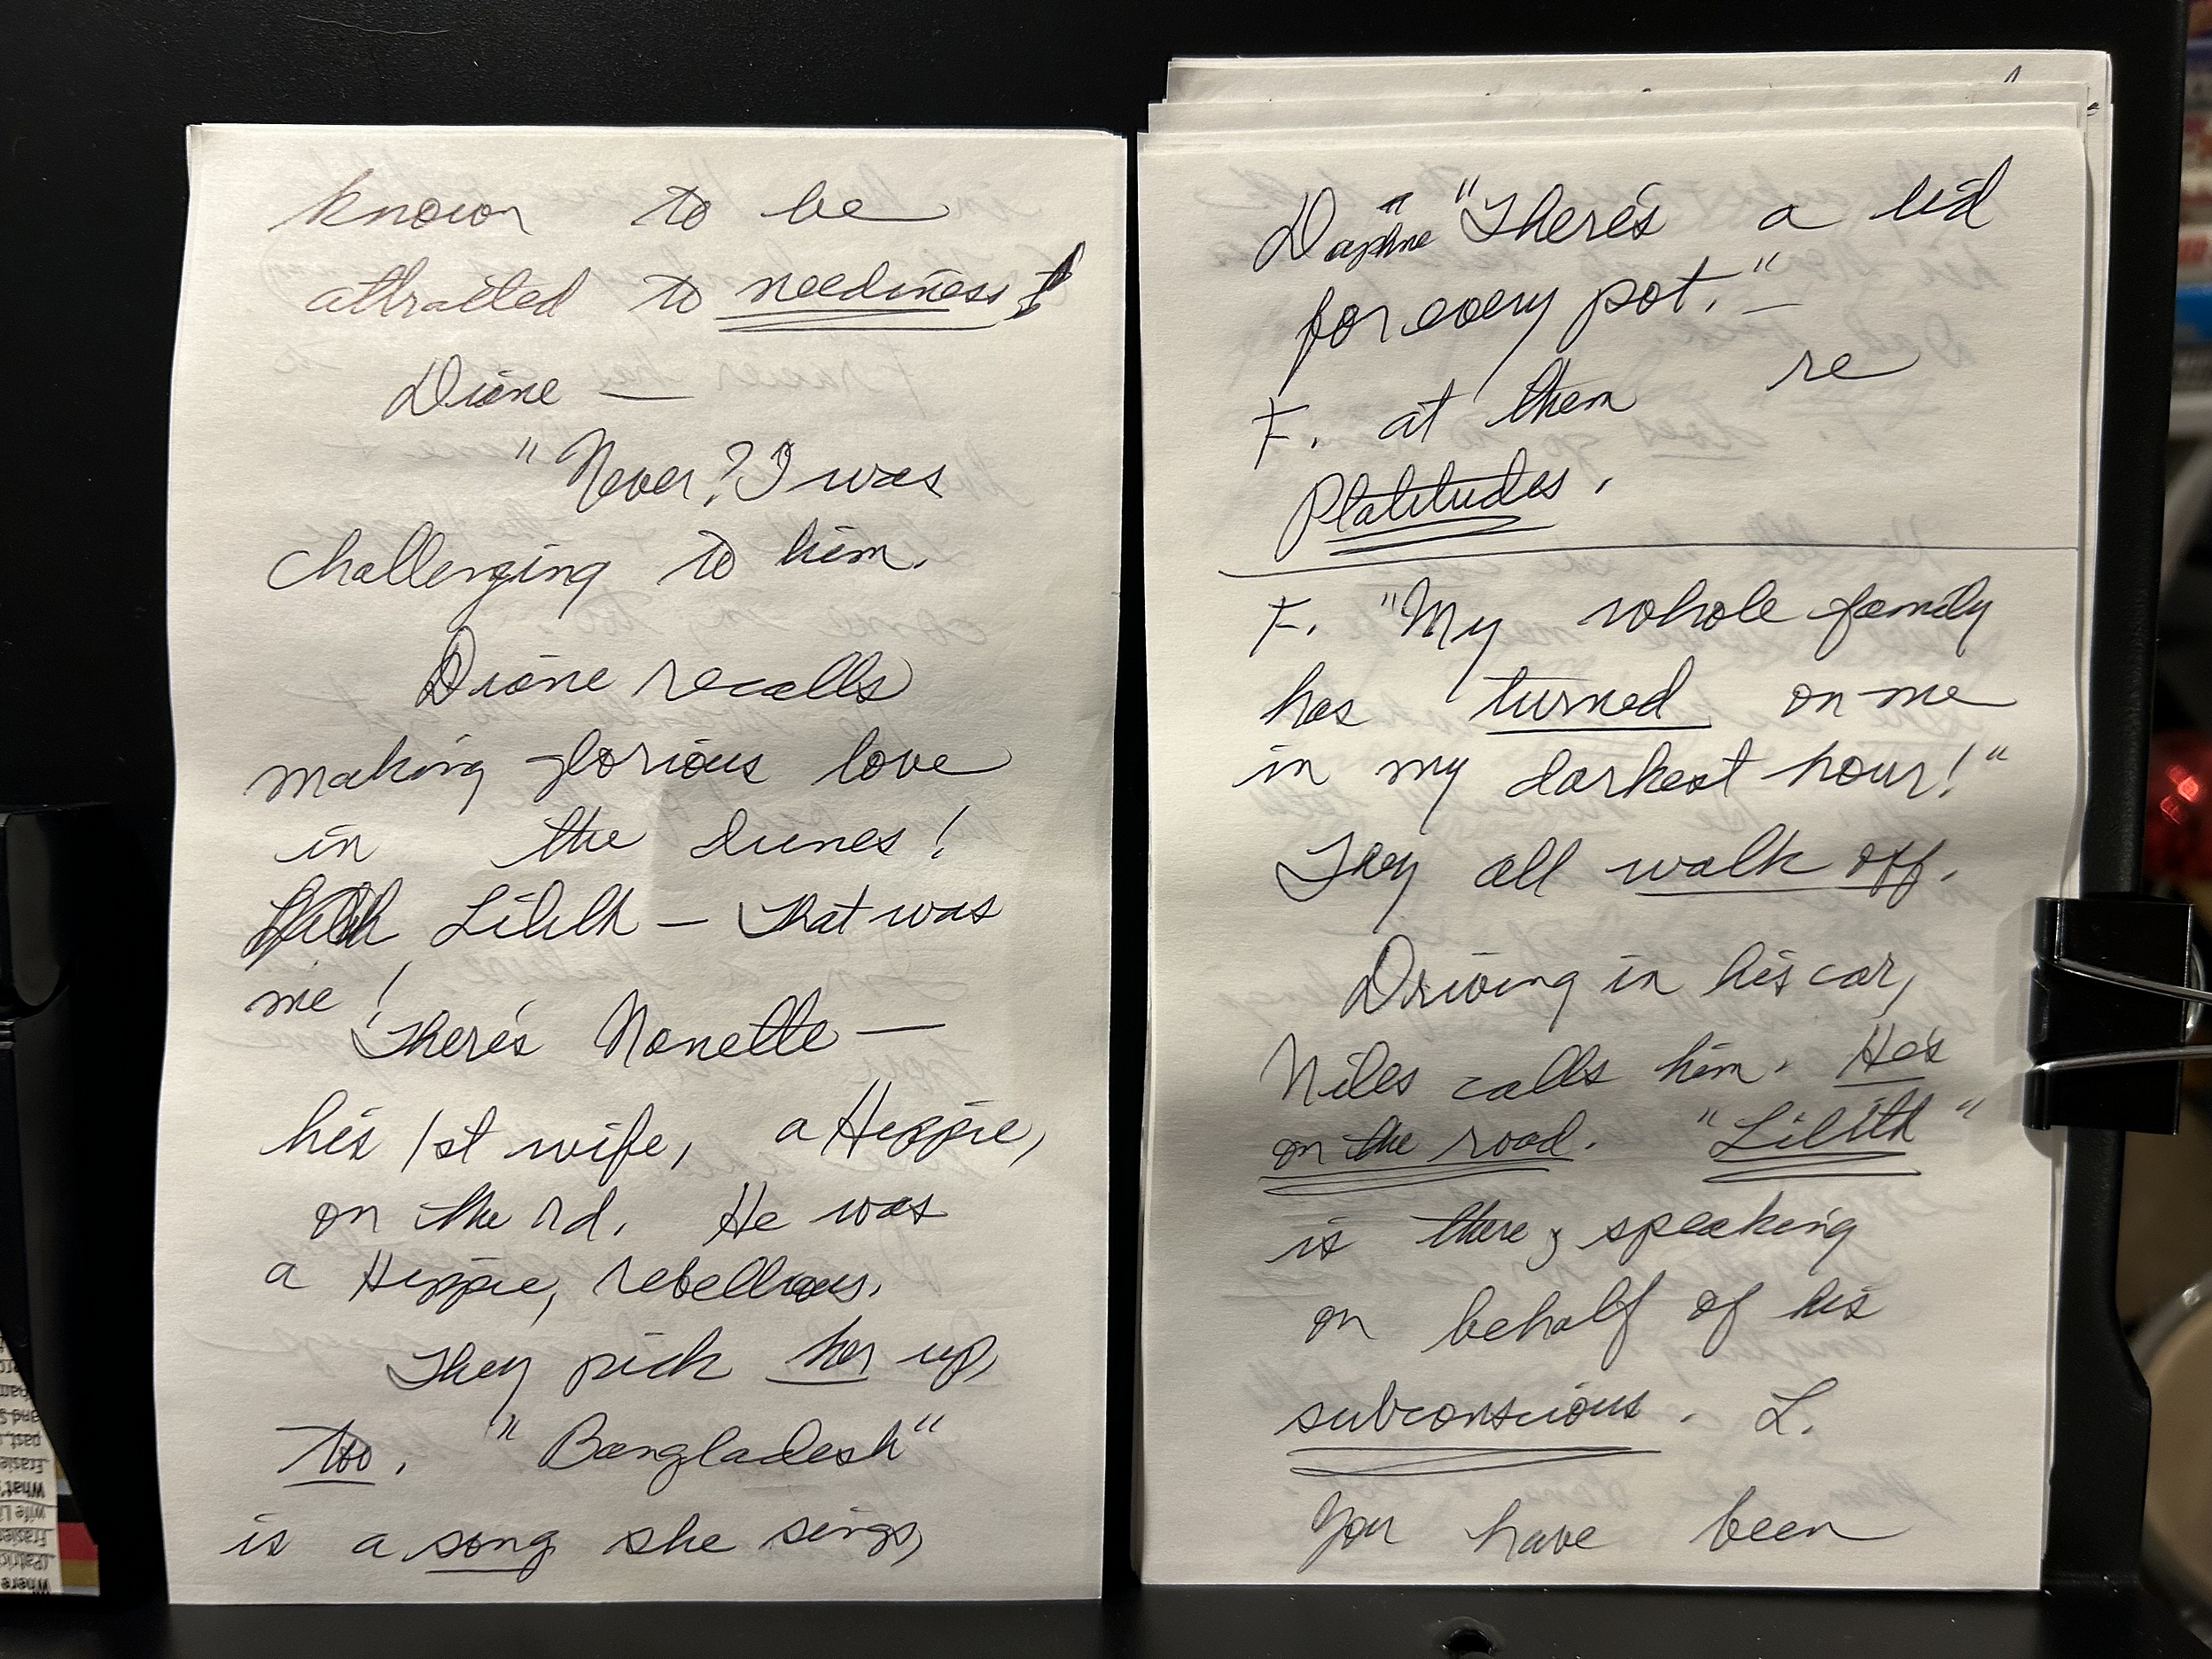 known to be
attracted to neediness!
Diane —
"Never? I was
challenging to him.
Diane recalls
making glorious love
in the dunes!
Lilith — That was
me!
There's Nanette —
his 1st wife, a Hippie,
on the rd. He was
a Hippie, rebellious.
They pick her up,
too. "Bangladesh"
is a song she sings,
Daphne "There's a lid
for every pot." —
F. at them re
Platitudes.
F. "My whole family
has turned on me
in my darkest hour!"
They all walk off.
Driving in his car,
Niles calls him. He's
on the road. "Lilith"
is there, speaking
on behalf of his
subconscious. L.
You have been